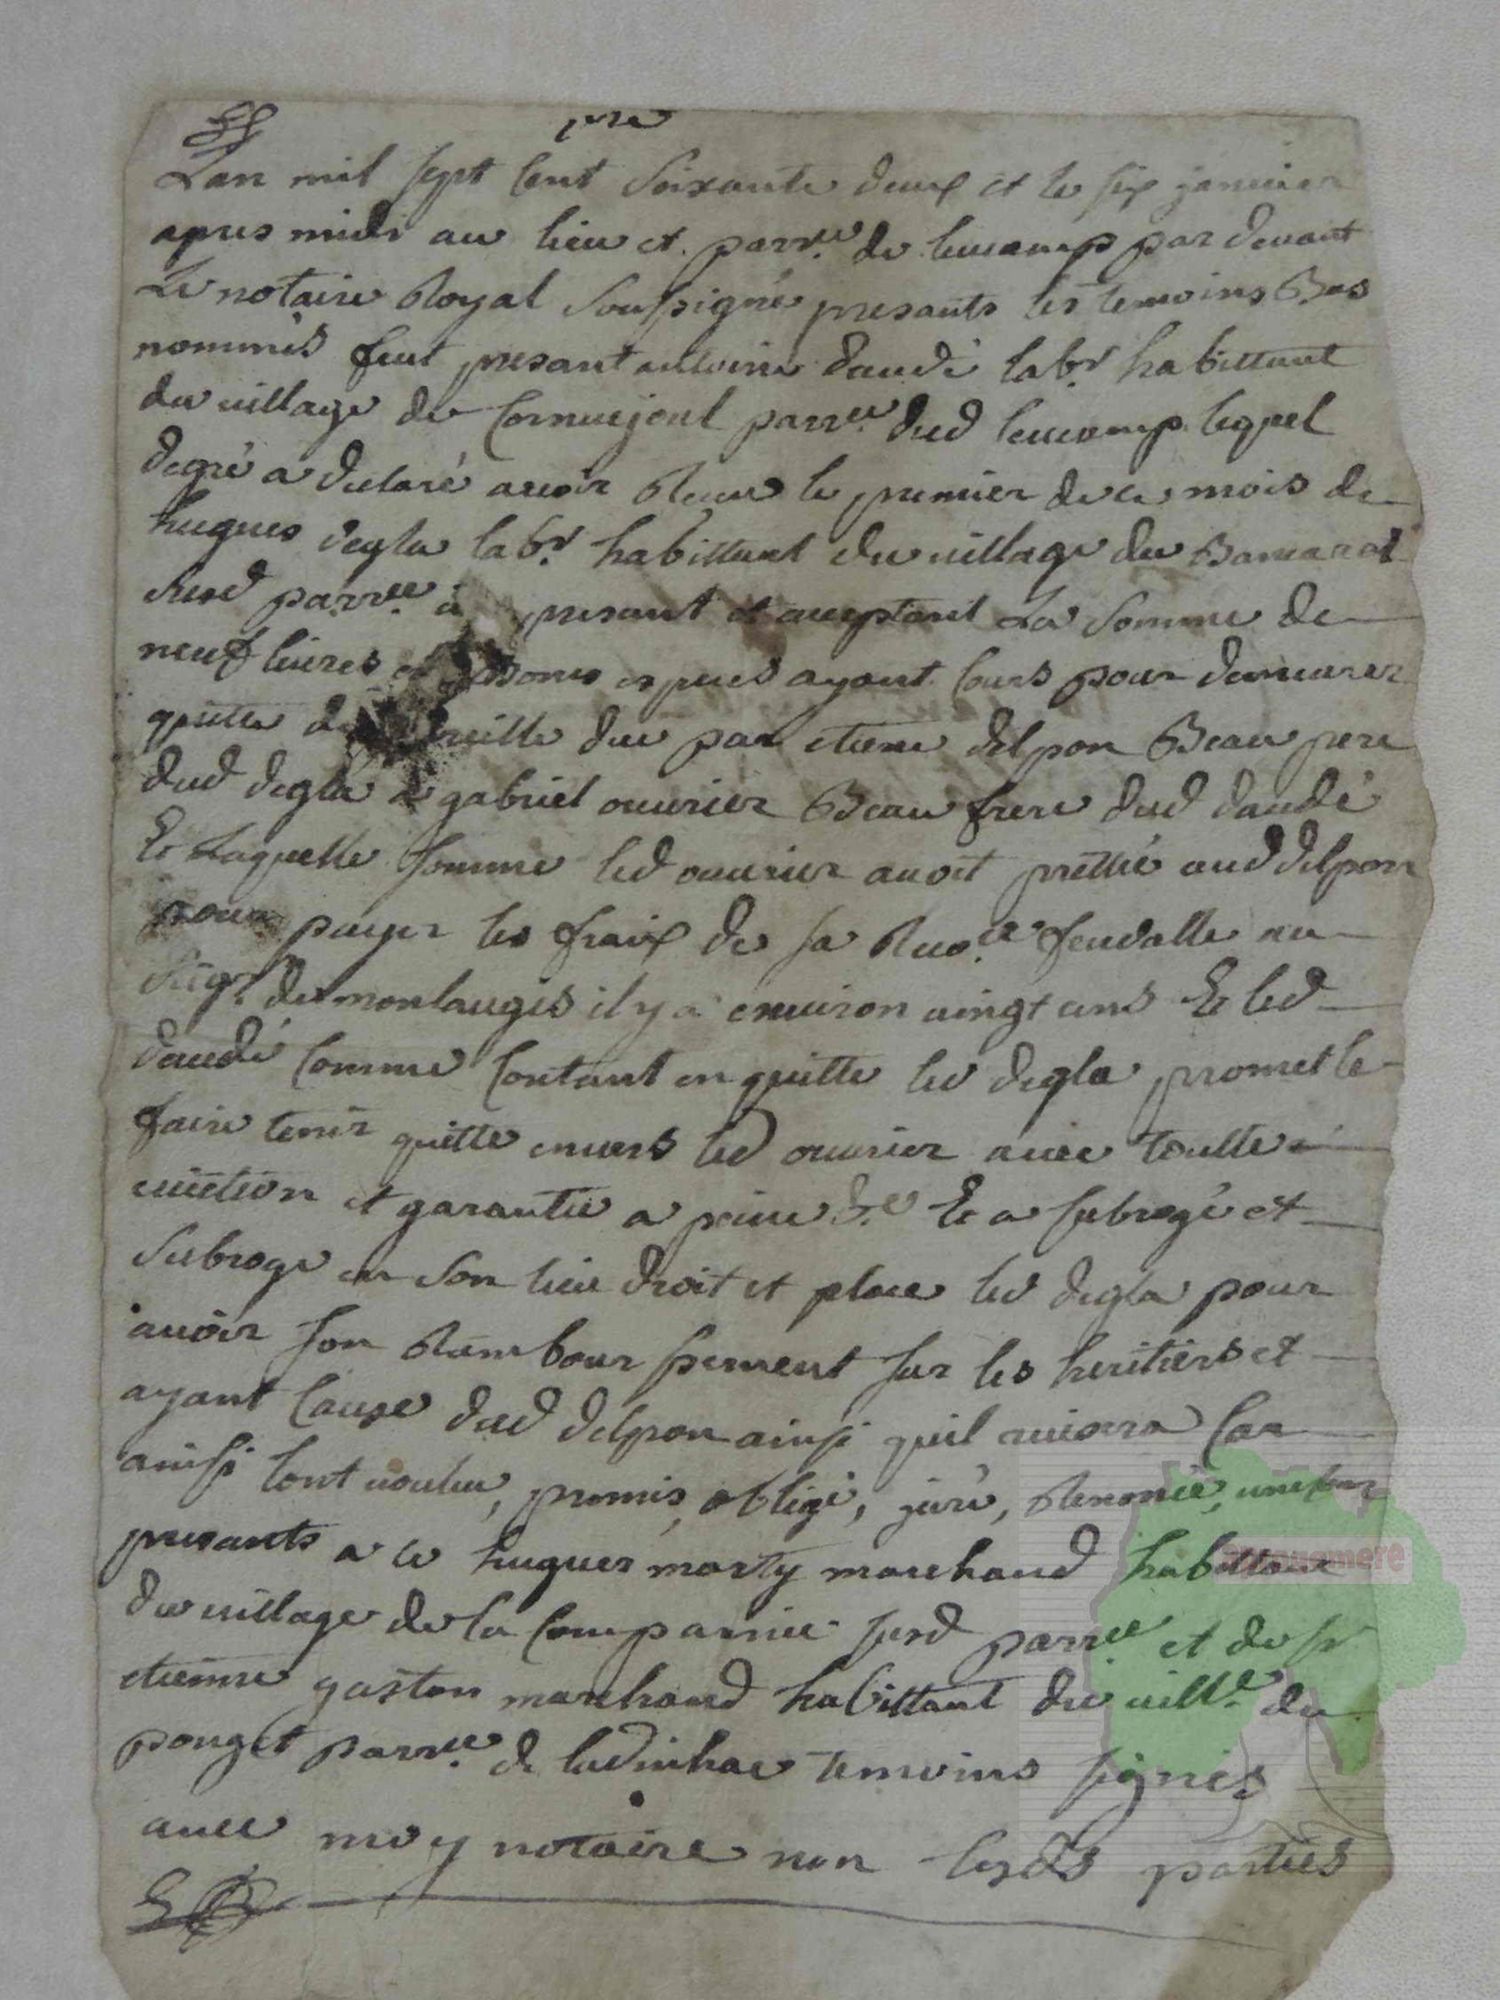 Lan mil sept cent soixante deux et le six janvier
apres midi au lieu et parr.e de leucamp par devant
Le notaire Royal soussigné presants les temoins Bas
nommés feut presant antoine daudé lab.r habittant
du village de Cornuejoul parr.e dud leucamp lequel
degré a declaré avoir Receu le premier de ce mois de
hugues degla lab.r habittant du village du
dud parr.e presant et acceptant La somme de
neuf livres bones especes ayant cours pour demeurer
quitte due par etiene delpon Beau pere
dud degla a gabriel ouvrier Beau frere dud daudé
Et Laquelle somme led ouvrier avoit prettée aud delpon
pour payer les fraix de sa feudalle au
de montaugis il y a environ vingt ans Et led
daudé comme contant en quitte led degla promet le
faire tenir quitte envers led ouvrier avec toutte
eviction et garantie a peine &.e Et a subrogé et
subroge en son lieu droit et place led degla pour
avoir son Rambourssement sur les heritiers et
ayant cause dud delpon ainsi quil avisera Car
ainsi lont voulu, promis, obligé, juré, Renoncé,
presants a ce hugues marty marchand habittant
du village de la Comparnie susd parr.e et de sr
etienne gaston marchand habittant du vill.e du
pouget parr.e de ladinhac temoins signés
avec moy notaire non lesd.s parties